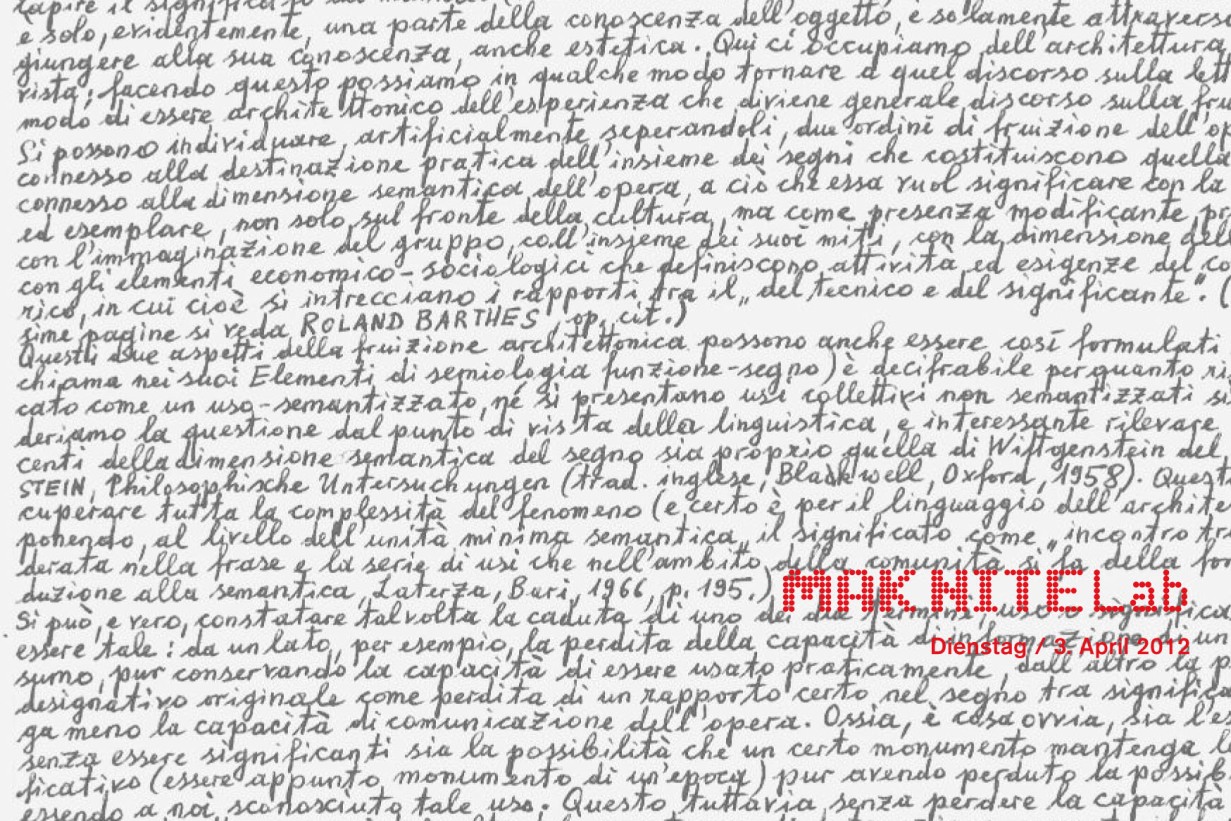 capire il significato
e solo, evidentemente, una parte della conoscenza dell'oggetto, e solamente attraverso
giungere alla sua conoscenza, anche estetica. Qui ci occupiamo dell'architettura
vista; facendo questo possiamo in qualche modo tornare a quel discorso sulla
modo di essere architettonico dell'esperienza che diviene generale discorso sulla
Si possono individuare, artificialmente seperandoli, due ordini di fruizione
connesso alla destinazione pratica dell'insieme dei segni che costituiscono quella
connesso alla dimensione semantica dell'opera, a ciò che essa vuol significare con la
ed esemplare, non solo sul fronte della cultura, ma come presenza modificante
con l'immaginazione del gruppo, coll'insieme dei suoi miti, con la dimensione
con gli elementi economico-sociologici che definiscono attività ed esigenze del
rico, in cui cioè si intrecciano i rapporti fra il „del tecnico e del significante". (
sime pagine si veda ROLAND BARTHES, op. cit.)
Questi due aspetti della fruizione architettonica possono anche essere così formulati
chiama nei suoi Elementi di semiologia funzione-segno) è decifrabile per quanto
cato come un uso-semantizzato, né si presentano usi collettivi non semantizzati
deriamo la questione dal punto di vista della linguistica, e interessante rilevare
centi della dimensione semantica del segno sia proprio quella di Wittgenstein del
STEIN, Philosophische Untersuchungen (trad. inglese, Blackwell, Oxford, 1958).
cuperare tutta la complessità del fenomeno (e certo è per il linguaggio
ponendo, al livello dell'unità minima semantica „il significato come „incontro
derata nella frase e la serie di usi che nell'ambito della comunità si fa della
duzione alla semantica, Laterza, Bari, 1966, p. 195.)
MAK NITE Lab
Si può, e vero, constatare talvolta la caduta di uno dei due termini, uso
essere tale: da un lato, per esempio, la perdita della capacità
Dienstag / 3. April 2012
sumo, pur conservando la capacità di essere usato praticamente, dall'altro la
designativo originale come perdita di un rapporto certo nel segno tra
ga meno la capacità di comunicazione dell'opera. Ossia, è cosa ovvia, sia
senza essere significanti sia la possibilità che un certo monumento mantenga
ficativo (essere appunto monumento di un'epoca) pur avendo perduto la
essendo a noi sconosciuto tale uso. Questo tuttavia senza perdere la capacità